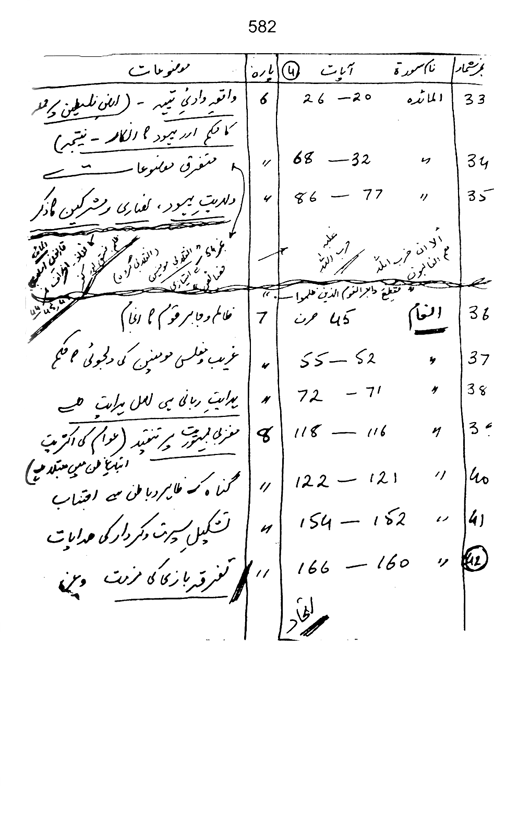 582
نمبر شمار نام سورۃ آیات (4) پارہ موضوعات
33 المائدہ 20 — 26 6 واقعہ وادئ تیہ - (ارض فلسطین پر حملہ
کا حکم اور یہود کا انکار - نتیجہ)
34 〃 32 — 68 〃 متفرق موضوعات
35 〃 77 — 86 〃 ولدیت یہود، نصاریٰ و مشرکین کا ذکر
ألا ان حزب اللہ
ھم الغالبون
غلبہ
حزب اللہ
فقطع دابر القوم الذین ظلموا
36 انعام 45 صرف 7 ظالم و جابر قوم کا انجام
37 〃 52 — 55 〃 غریب و مفلس مومنین کی دلجوئی کا حکم
38 〃 71 — 72 〃 ہدایتِ ربانی ہی اصل ہدایت ہے
39 〃 116 — 118 8 مغربی جمہوریت پر تنقید (عوام کی اکثریت
اتباعِ ظن میں مبتلا ہے)
40 〃 121 — 122 〃 گناہ کے ظاہر و باطن سے اجتناب
41 〃 152 — 154 〃 تشکیل سیرت و کردار کی ہدایات
42 〃 160 — 166 〃 تفرقہ بازی کی مزمت وغیرہ
اتحاد